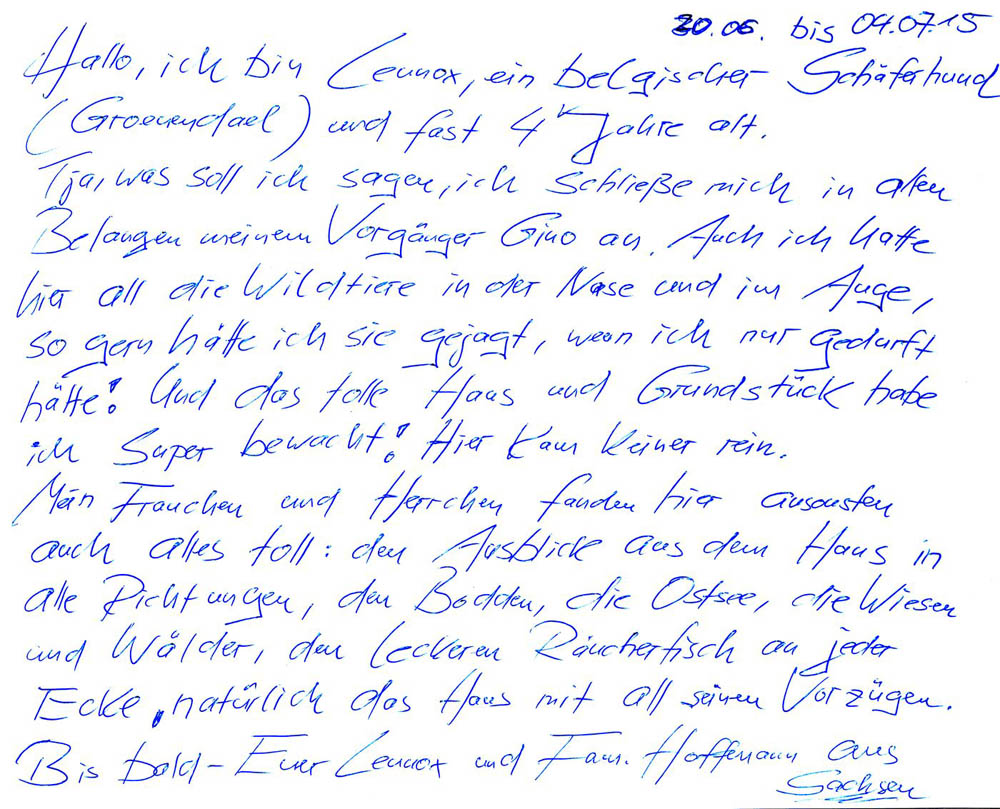 20.06. bis 04.07.15
Hallo, ich bin Lennox, ein belgischer Schäferhund
(Groenendael) und fast 4 Jahre alt.
Tja, was soll ich sagen, ich schließe mich in allen
Belangen meinem Vorgänger Gino an. Auch ich hatte
hier all die Wildtiere in der Nase und im Auge,
so gern hätte ich sie gejagt, wenn ich nur gedurft
hätte! Und das tolle Haus und Grundstück habe
ich Super bewacht! Hier kam keiner rein.
Mein Frauchen und Herrchen fanden hier ansonsten
auch alles toll: den Ausblick aus dem Haus in
alle Richtungen, den Bodden, die Ostsee, die Wiesen
und Wälder, den leckeren Räucherfisch an jeder
Ecke, natürlich das Haus mit all seinen Vorzügen.
Bis bald - Euer Lennox und Fam. Hoffmann aus
Sachsen